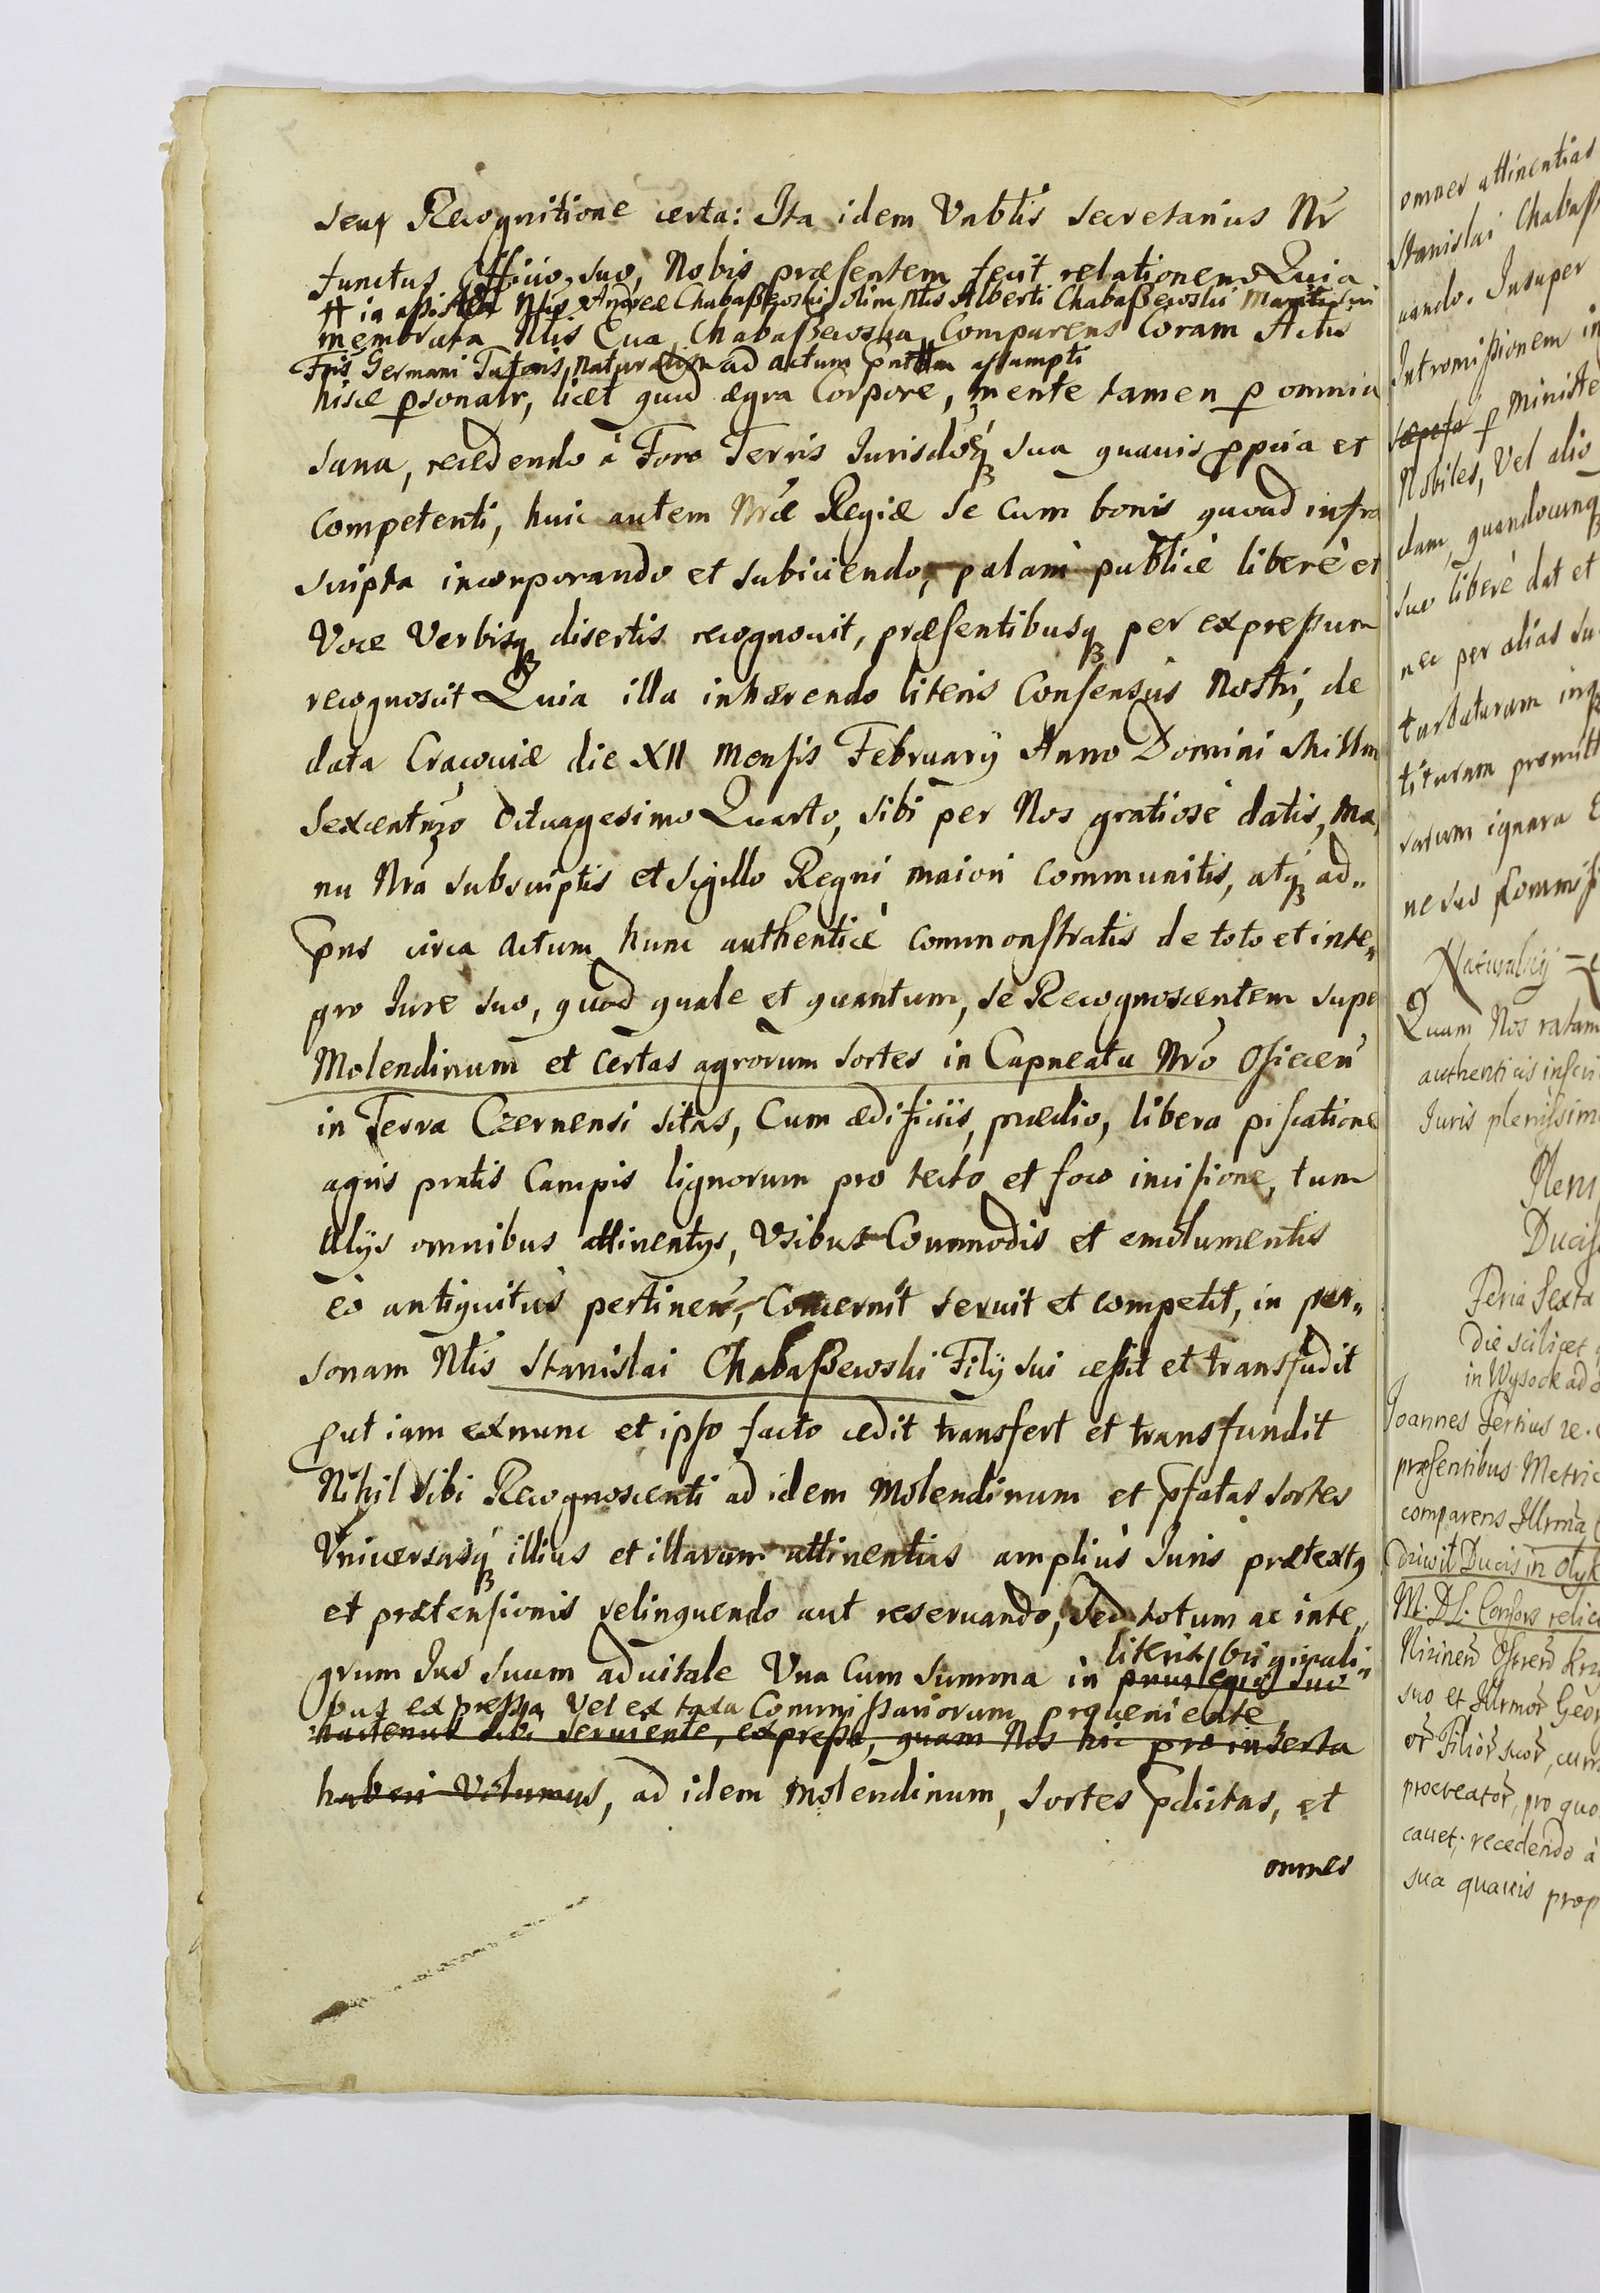 seu Recognitione certa: Ita idem Vnblis Secretarius Nr
functus officio suo, Nobis præsentem fecit relationem Quia
# in assistẽn Nlis Andreæ Chabaßewski olim Nlis Alberti Chabaßewski Mariti sui
memorata Nlis Eua Chabaßewska Comparens Coram Actis
Fris Germani Tutoris, naturalis ad actum pntem assumpti
hisce psonalr, licet quid ægra Corpore, mente tamen p omnia
sana, recedendo à Foro Terris Jurisdõeq sua quauis ppria et
Competenti, huic autem Nræ Regiæ se cum bonis quoad infra
scripta incorporando et subiiciendo, palam publicè liberè et
Voce Verbisq disertis recognouit, præsentibusq per expressum
recognoscit Quia illa inhærendo literis Consensus Nostri, de
data Cracouiæ die XII Mensis February Anno Domini Millmo
Sexcentmo Octuagesimo Quarto, sibi per Nos gratiosè datis, Ma,
nu Nra subscriptis et Sigillo Regni maiori Communitis, atq ad„
pns circa Actum hunc authenticè commonstratis de toto et inte„
gro Iure suo, quod quale et quantum, se Recognoscentem super
Molendinum et certas agrorum sortes in Capneatu Nrõ Osiecen
in Terra Czernensi sitas, Cum ædificiis, prædio, libera piscatione
aquis pratis Campis lignorum pro tecto et foco incisione, tum
Alijs omnibus attinentys, Vsibus Commodis et emolumentis
eò antiquitus pertinen, Concernit seruit et competit, in per„
sonam Nlis Stanislai Chabaßewski Filij sui cessit et transfudit
put iam exnunc et ipso facto cedit transfert et transfundit
Nihil sibi Recognoscenti ad idem Molendinum et pfatas sortes
Vniuersasq illius et illarum attinentias ampliùs Iuris prætextus
et prætensionis relinquendo aut reseruando, sed totum ac inte„
grum Ius suum aduitale Vna Cum summa in priuilegio suo
literis originali„
bus expressa Vel ex taxa Commissariorum proueniente
hactenus sibi seruiente, expressa, quam Nos hic pro inserta
haberi Volumus, ad idem Molendinum, sortes pdictas, et
omnes
omnes attinentias
Stanislai Chabaß
uando. Insuper
Intromissionem in
p Ministe
Nobiles, Vel alio
dam quandocunq
suo liberè dat et
nec per alias su
titurum promitt
ratum ignara
Quam Nos ratam
authenticis inscri
Iuris plenissim
Plen
Ducis
Feria Sexta
die scilicet
in Wysock ad
Joannes Tertius
præsentibus Metric
comparens Illrma
Ducis in Olyk
M. D L. Consors relic
suo et Illrmor Geor
or Filior suor, cum
procreator, pro quo
cauet, recedendo à
sua quauis prop